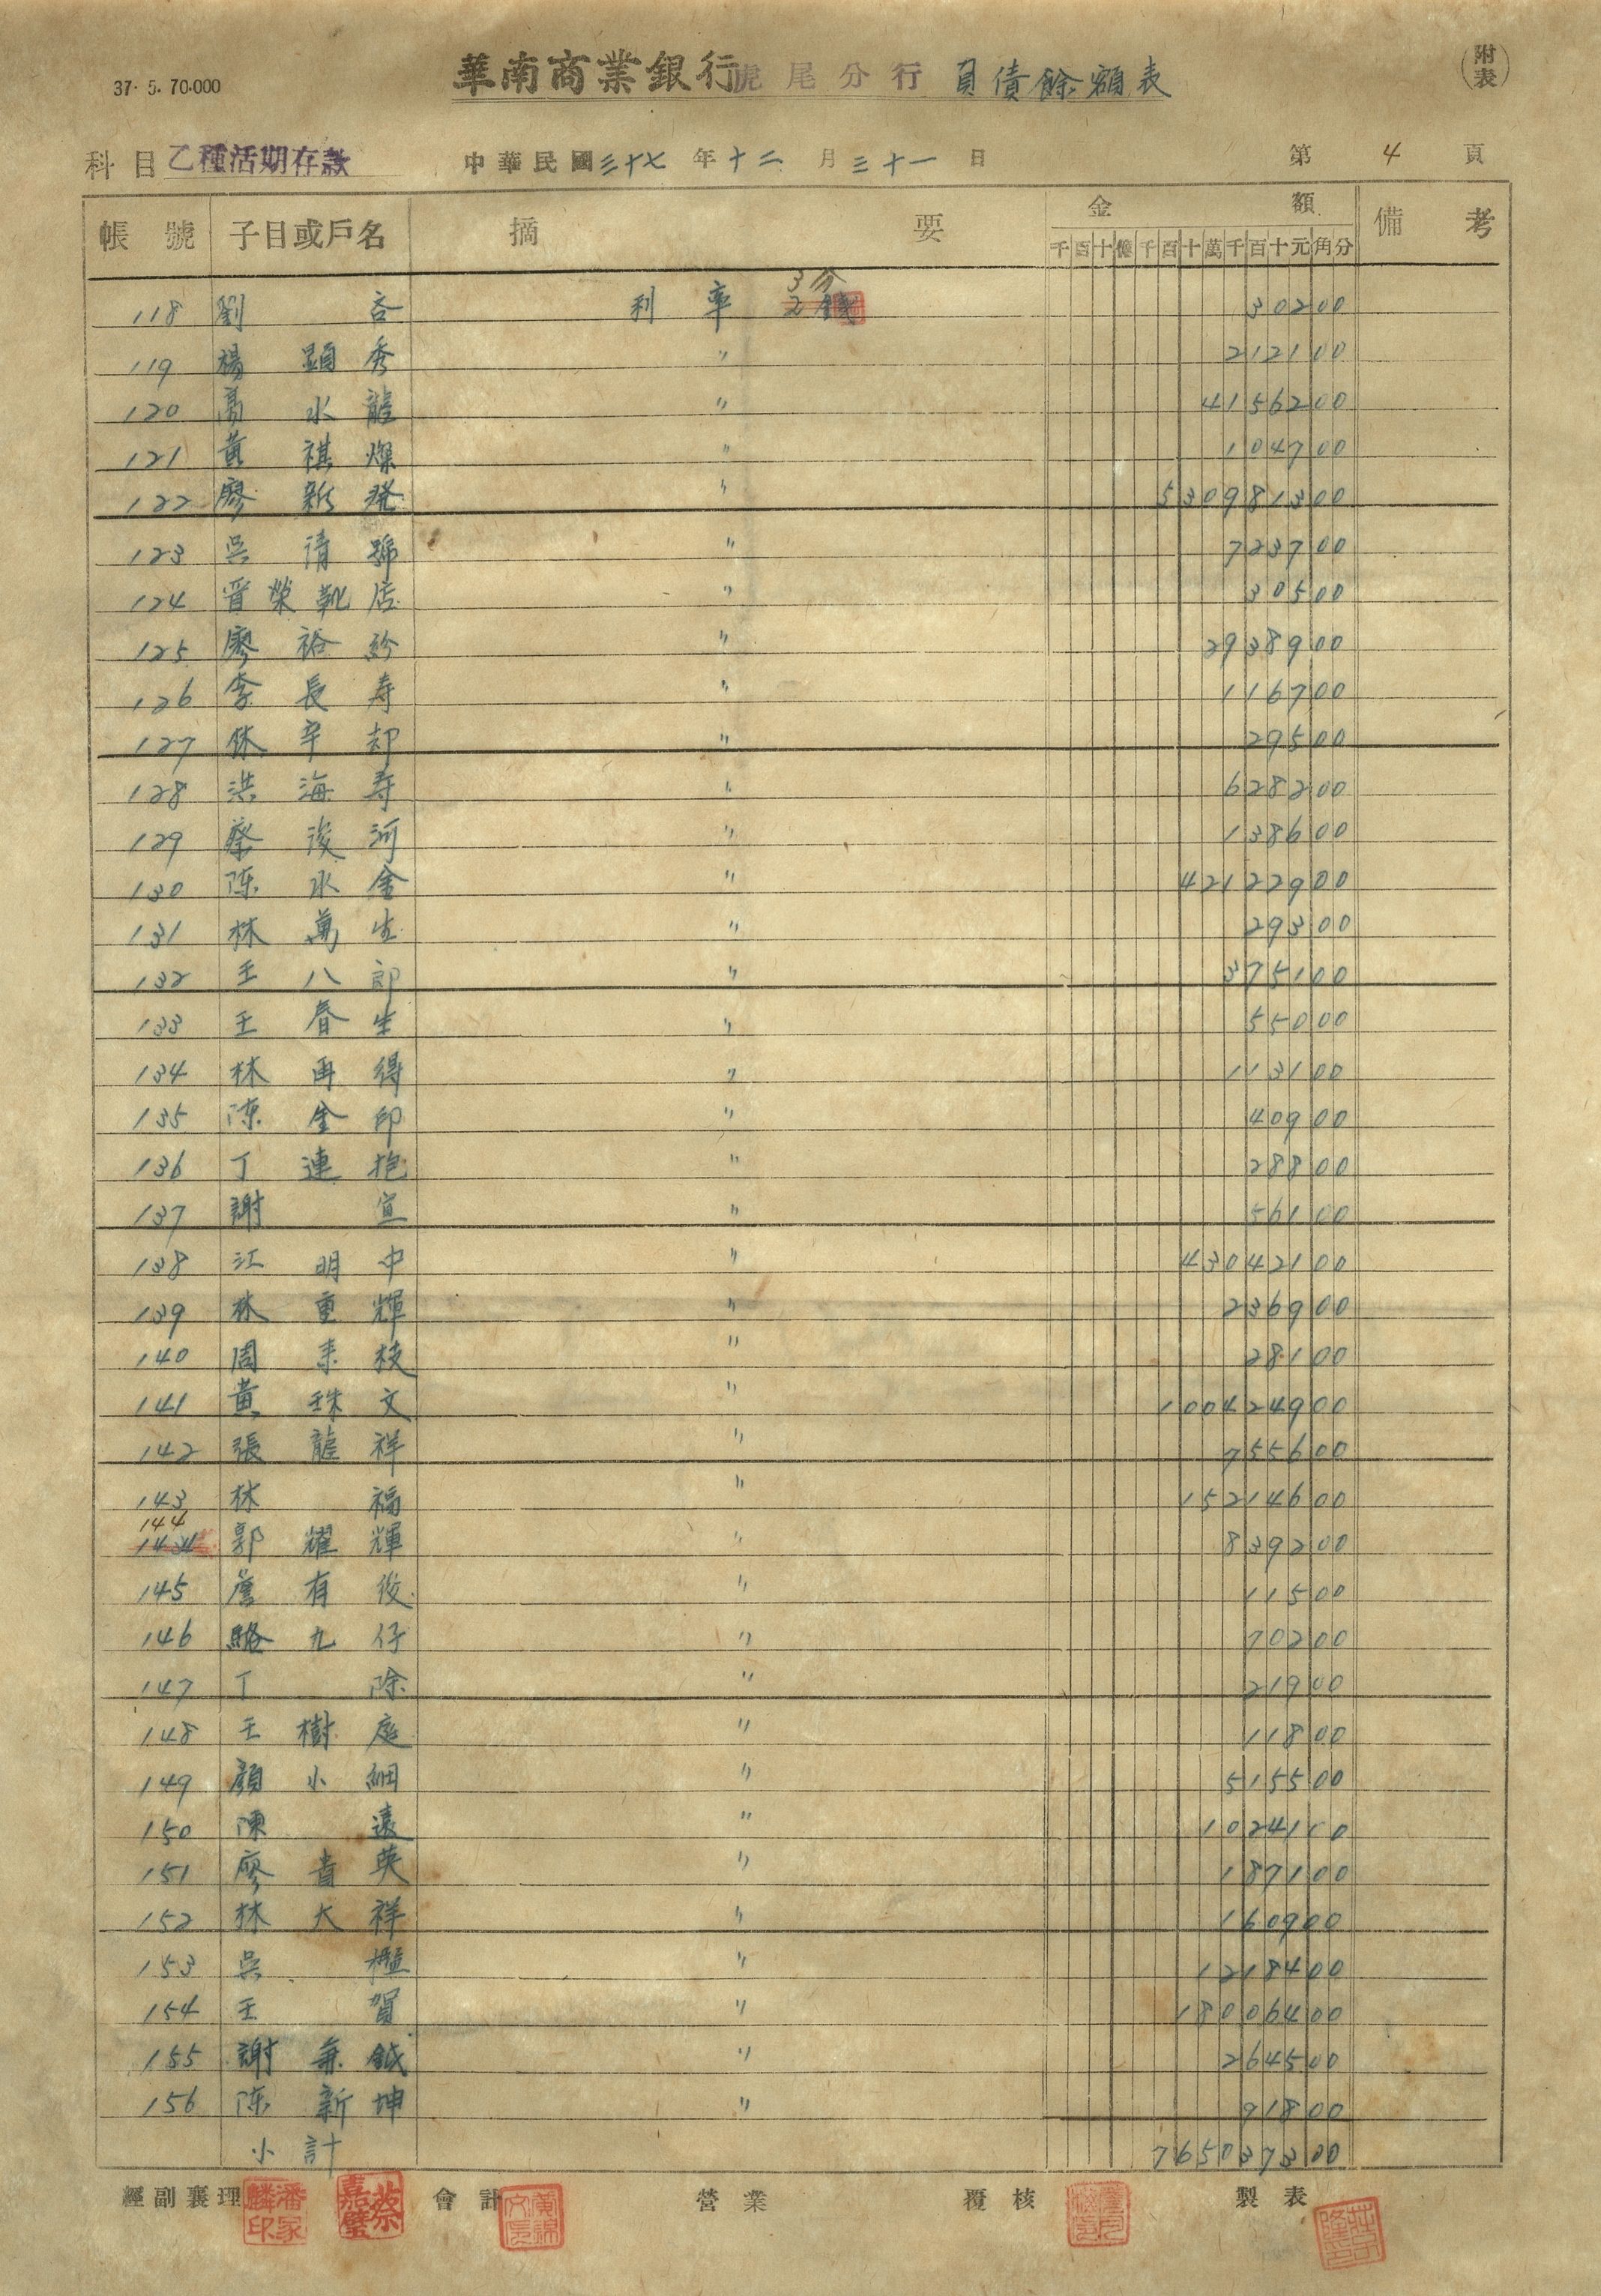 37. 5. 70.000
華南商業銀行虎尾分行 負債餘額表 (附表)
科目 乙種活期存款 中華民國三十七年十二月三十一日 第 4 頁
帳號 子目或戶名 摘要 金額 備考
千百十億千百十萬千百十元角分
3分
118 劉吝 利率 2錢 30200
119 楊顕秀 〃 212100
120 高水龍 〃 4156200
121 黃祺燦 〃 104700
122 廖新發 〃 530981300
123 吳清歸 〃 723700
124 晋榮靴店 〃 30500
125 廖裕紛 〃 2938900
126 李長寿 〃 116700
127 林辛却 〃 29500
128 洪海寿 〃 628200
129 蔡浚河 〃 138600
130 陈水金 〃 42122900
131 林萬生 〃 29300
132 王八郎 〃 375100
133 王春生 〃 55000
134 林再得 〃 113100
135 陈金印 〃 40900
136 丁連抱 〃 28800
137 謝宣 〃 56100
138 江明中 〃 43042100
139 林重輝 〃 236900
140 周来枝 〃 28100
141 黃珠文 〃 100424900
142 張龍祥 〃 755600
143 林福 〃 15214600
144
郭耀輝 〃 839200
145 詹有俊 〃 11500
146 駱九仔 〃 70200
147 丁除 〃 21900
148 王樹庭 〃 11800
149 顏小細 〃 515500
150 陳遠 〃 1024110
151 廖貴英 〃 187100
152 林大祥 〃 160900
153 吳槛 〃 1218400
154 王賀 〃 18006400
155 謝兼鉞 〃 264500
156 陈新坤 〃 91800
小計 765037300
經副襄理 會計 營業 覆核 製表
潘家麟印 蔡嘉璧